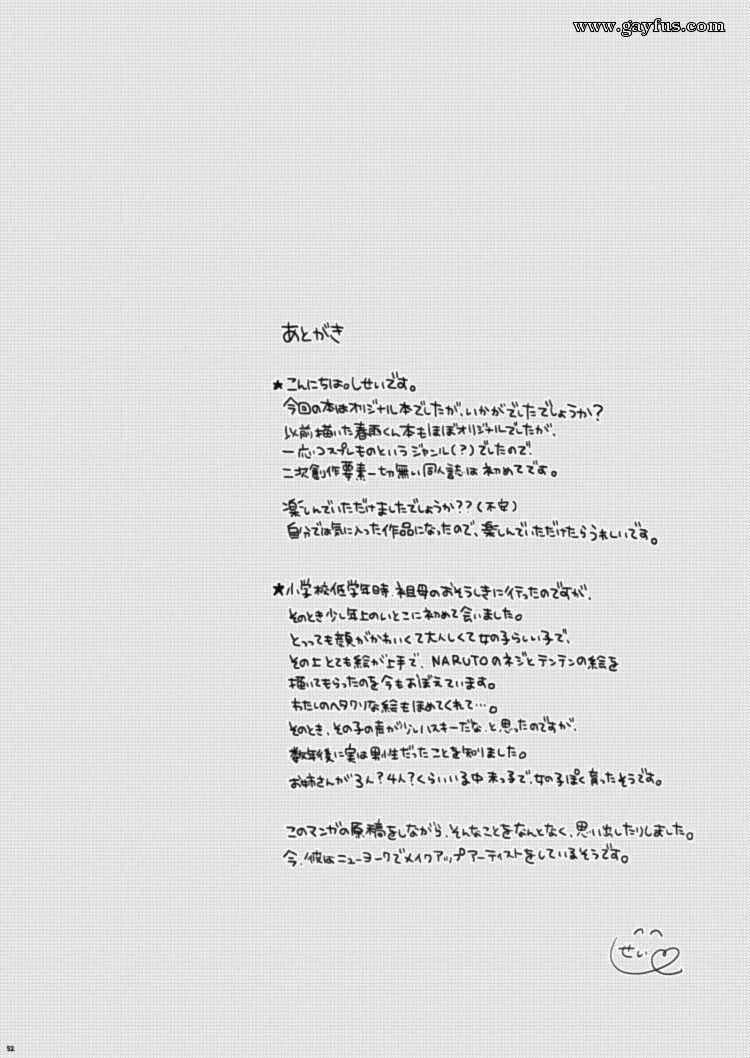 www.gayfus.com
あとがき
★こんにちは。しせいです。
今回の本はオリジナル本でしたが、いかがでしたでしょうか？
以前描いた春雨くん本もほぼオリジナルでしたが、
一応コスプレものというジャンル(？)でしたので、
二次創作要素一切無い同人誌は初めてです。
楽しんでいただけましたでしょうか？？(不安)
自分では気に入った作品になったので、楽しんでいただけたらうれしいです。
★小学校低学年時、祖母のおそうしきに行ったのですが、
そのとき少し年上のいとこに初めて会いました。
とっっても顔がかわいくて大人しくて女の子らしい子で、
その上とても絵が上手で、NARUTOのネジとテンテンの絵を
描いてもらったのを今もおぼえています。
わたしのヘタクソな絵もほめてくれて…。
そのとき、その子の声が少しハスキーだな、と思ったのですが、
数年後に実は男性だったことを知りました。
お姉さんが3人？4人？くらいいる中、末っ子で、女の子ぽく育ったそうです。
このマンガの原稿をしながら、そんなことをなんとなく、思い出したりしました。
今、彼はニューヨークでメイクアップアーティストをしているそうです。
せい
52